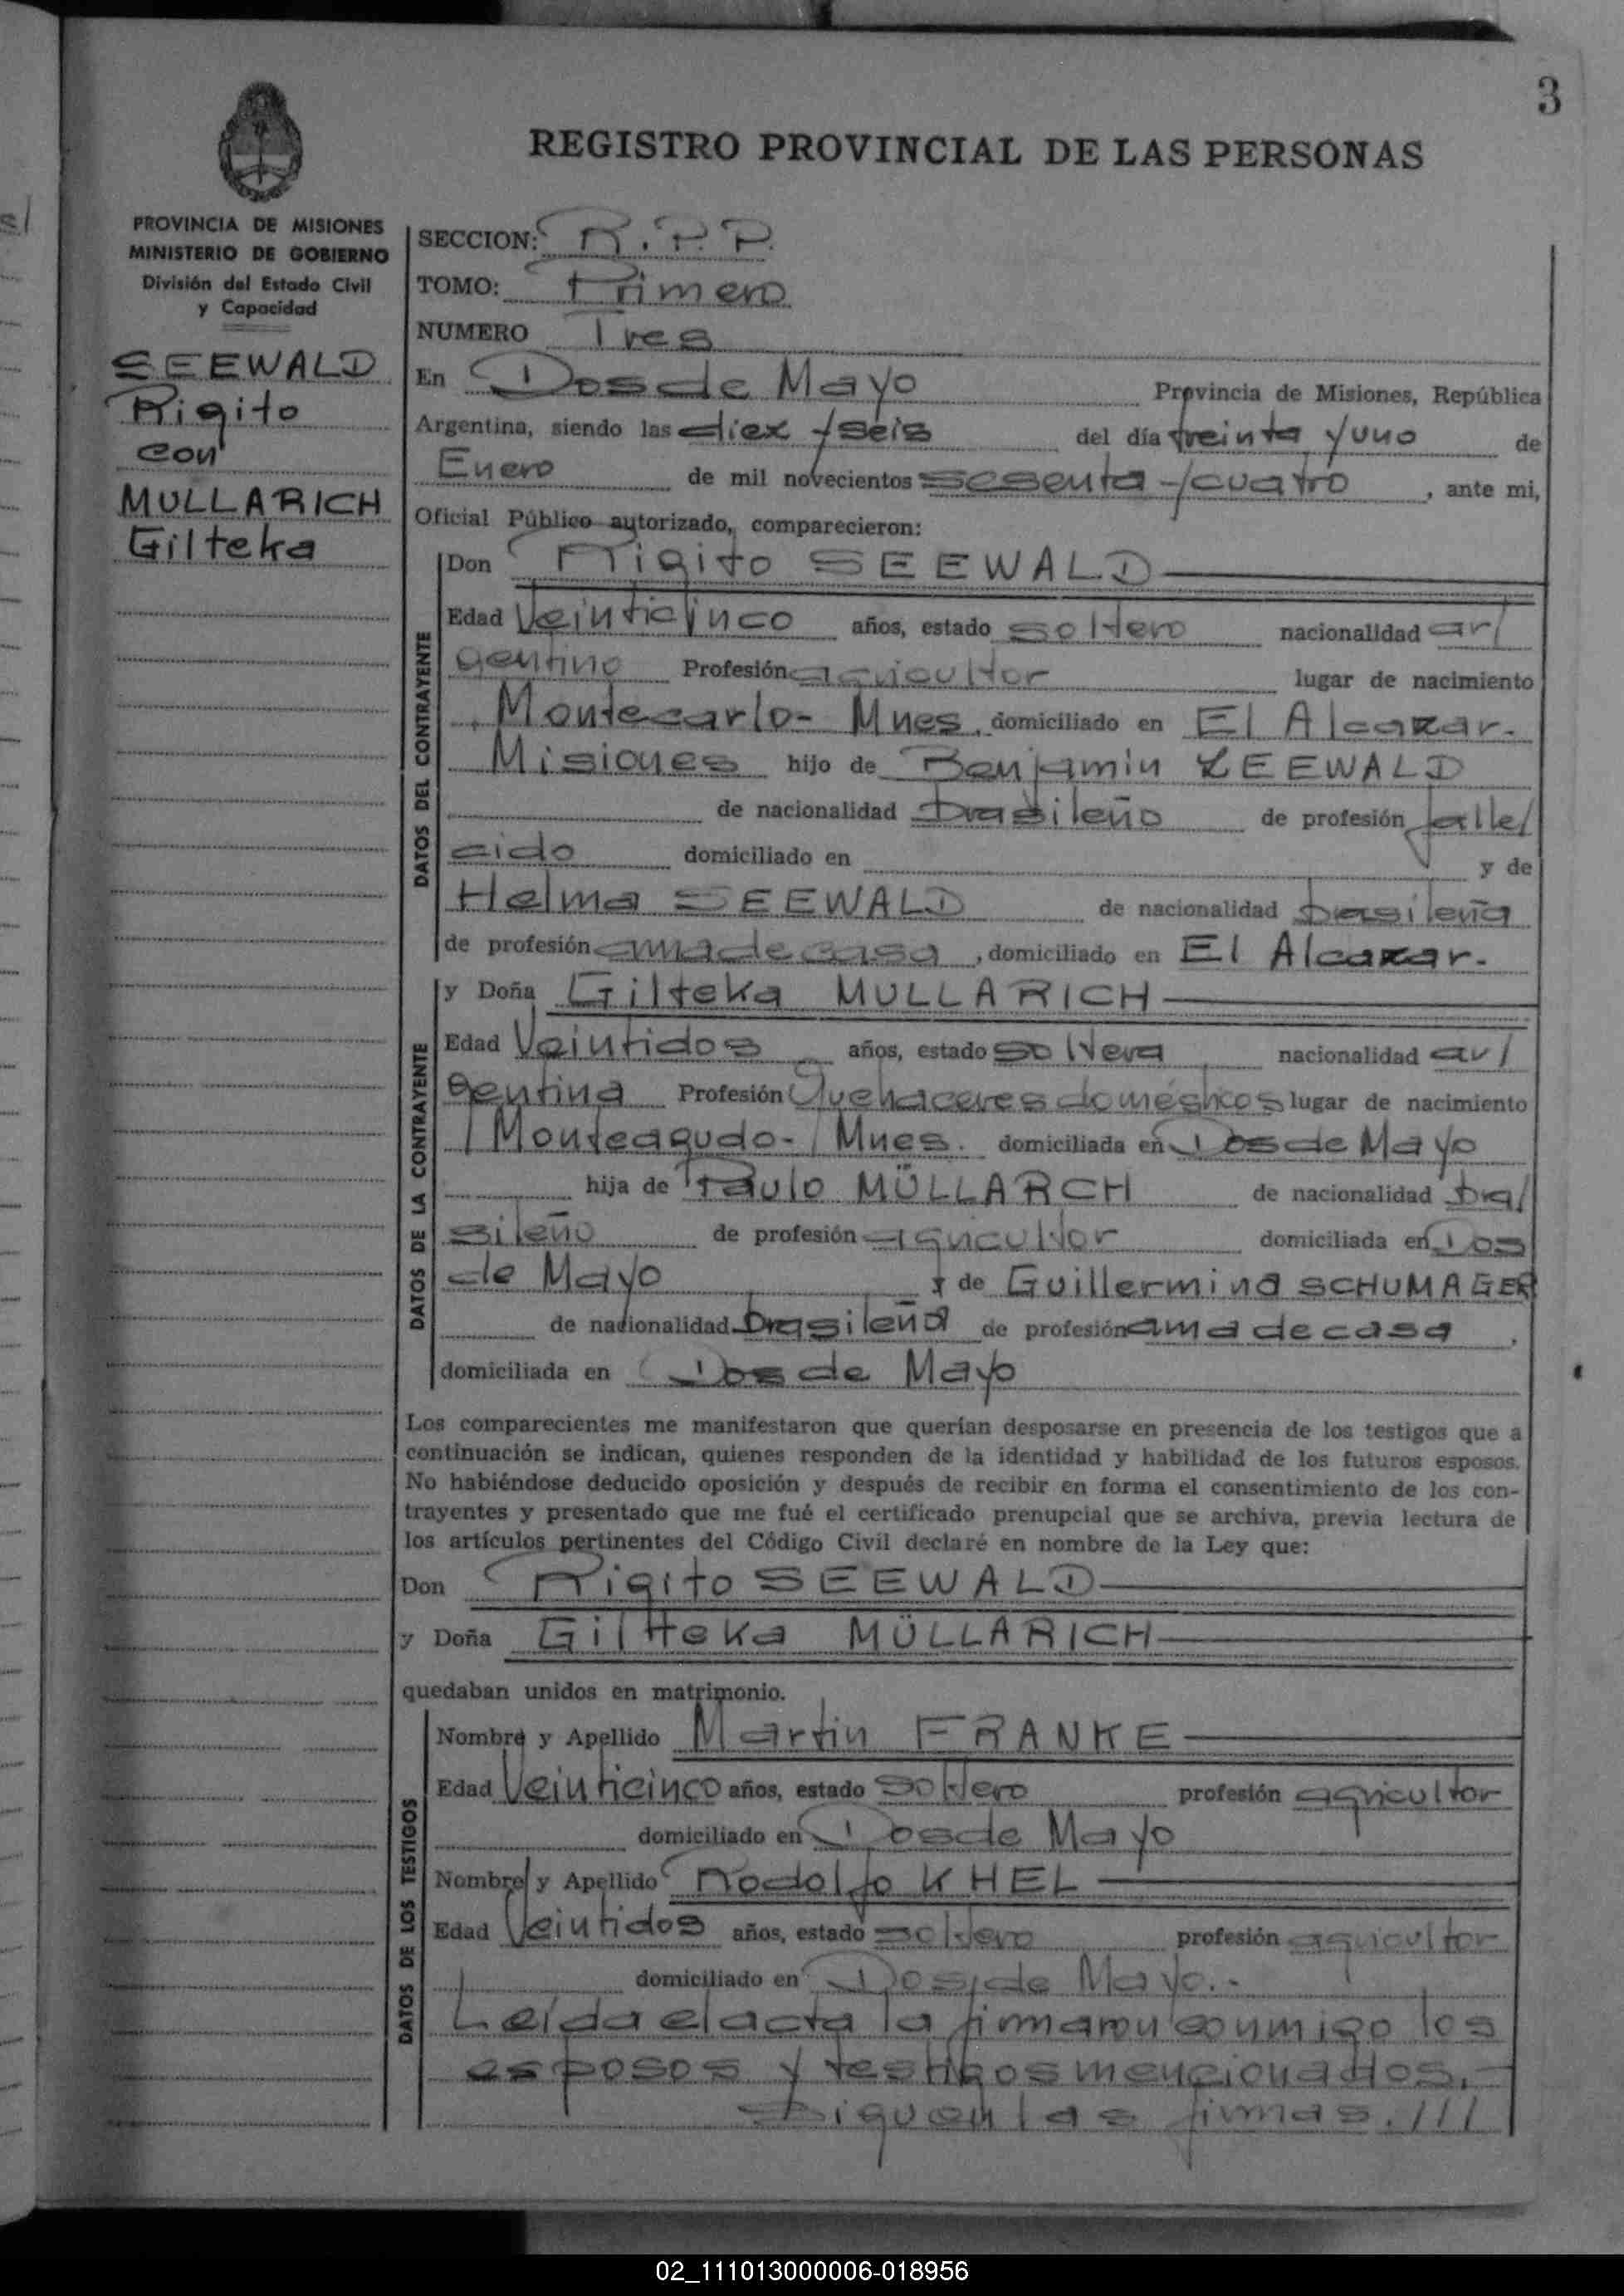 3
REGISTRO PROVINCIAL DE LAS PERSONAS
PROVINCIA DE MISIONES
MINISTERIO DE GOBIERNO
División del Estado Civil
y Capacidad
SEEWALD
Rigito
con
MULLARICH
Gilteka
SECCION: R.P.P.
TOMO: Primero
NUMERO Tres
En Dos de Mayo Provincia de Misiones, República
Argentina, siendo las diez y seis del día treinta y uno de
Enero de mil novecientos sesenta y cuatro, ante mi,
Oficial Público autorizado, comparecieron:
DATOS DEL CONTRAYENTE
Don Rigito SEEWALD
Edad Veinticinco años, estado soltero nacionalidad ar/
gentino Profesión agricultor lugar de nacimiento
Montecarlo- Mnes. domiciliado en El Alcazar.
Misiones hijo de Benjamin SEEWALD
de nacionalidad brasileño de profesión falle/
cido domiciliado en y de
Helma SEEWALD de nacionalidad brasileña
de profesión ama de casa, domiciliado en El Alcazar.
DATOS DE LA CONTRAYENTE
y Doña Gilteka MULLARICH
Edad Veintidos años, estado soltera nacionalidad ar/
gentina Profesión Quehaceres domésticos lugar de nacimiento
Monteagudo- Mnes. domiciliada en Dos de Mayo
hija de Paulo MÜLLARCH de nacionalidad bra/
sileño de profesión agricultor domiciliada en Dos
de Mayo y de Guillermina SCHUMAGER
de nacionalidad brasileña de profesión ama de casa,
domiciliada en Dos de Mayo
Los comparecientes me manifestaron que querían desposarse en presencia de los testigos que a
continuación se indican, quienes responden de la identidad y habilidad de los futuros esposos.
No habiéndose deducido oposición y después de recibir en forma el consentimiento de los con-
trayentes y presentado que me fué el certificado prenupcial que se archiva, previa lectura de
los artículos pertinentes del Código Civil declaré en nombre de la Ley que:
Don Rigito SEEWALD
y Doña Gilteka MÜLLARICH
quedaban unidos en matrimonio.
DATOS DE LOS TESTIGOS
Nombre y Apellido Martin FRANKE
Edad Veinticinco años, estado soltero profesión agricultor
domiciliado en Dos de Mayo
Nombre y Apellido Rodolfo KHEL
Edad Veintidos años, estado soltero profesión agricultor
domiciliado en Dos de Mayo.-
Leída el acta la firmaron conmigo los
esposos y testigos mencionados.-
Siguen las firmas.///
02_111013000006-018956